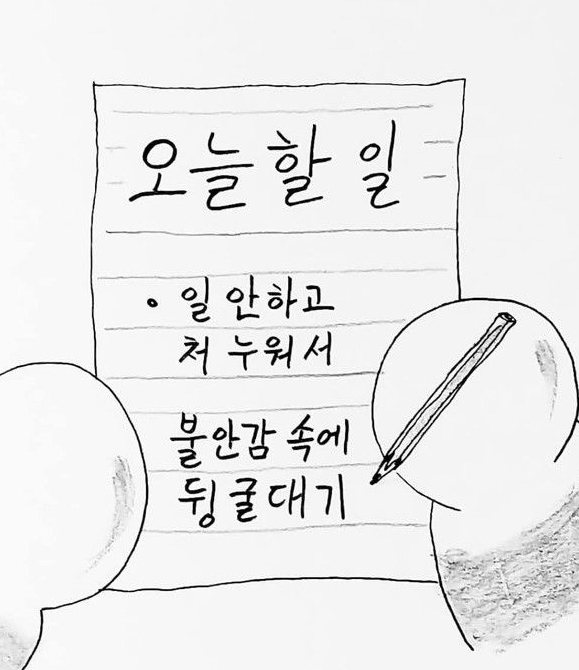 오늘 할 일
• 일 안하고
처 누워서
불안감 속에
뒹굴대기